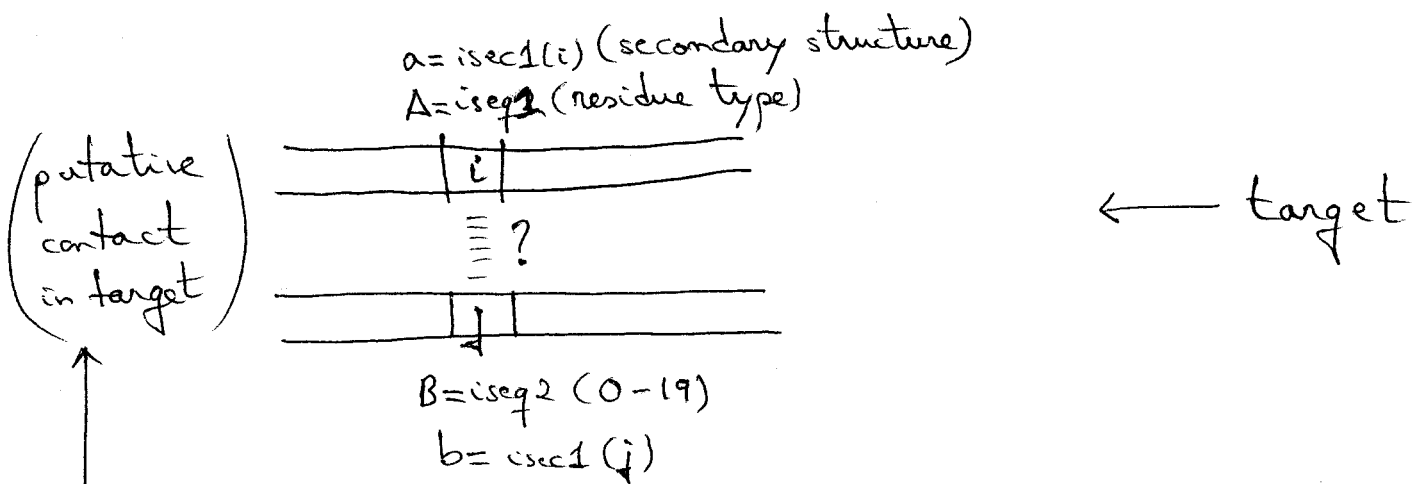 a=isec1(i) (secondary structure)
A=iseq1 (residue type)
(putative
contact
in target)
i
?
← target
j
B=iseq2 (0-19)
b= isec1 (j)